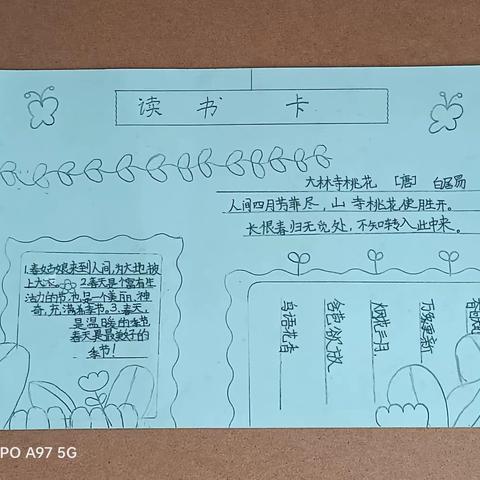 读书卡
大林寺桃花 [唐] 白居易
人间四月芳菲尽,山寺桃花使用生开。
长恨春归无觅处,不知转入此中来。
1.春姑娘来到人间,为大地披
上大衣。2.春天是个富有生
活力的节,也是一个美丽,神
奇,充满春季节。3.春天,
是温暖的季节
春天是最美好的
季节!
鸟语花香
含苞欲放
烟花三月
万象更新
PO A97 5G